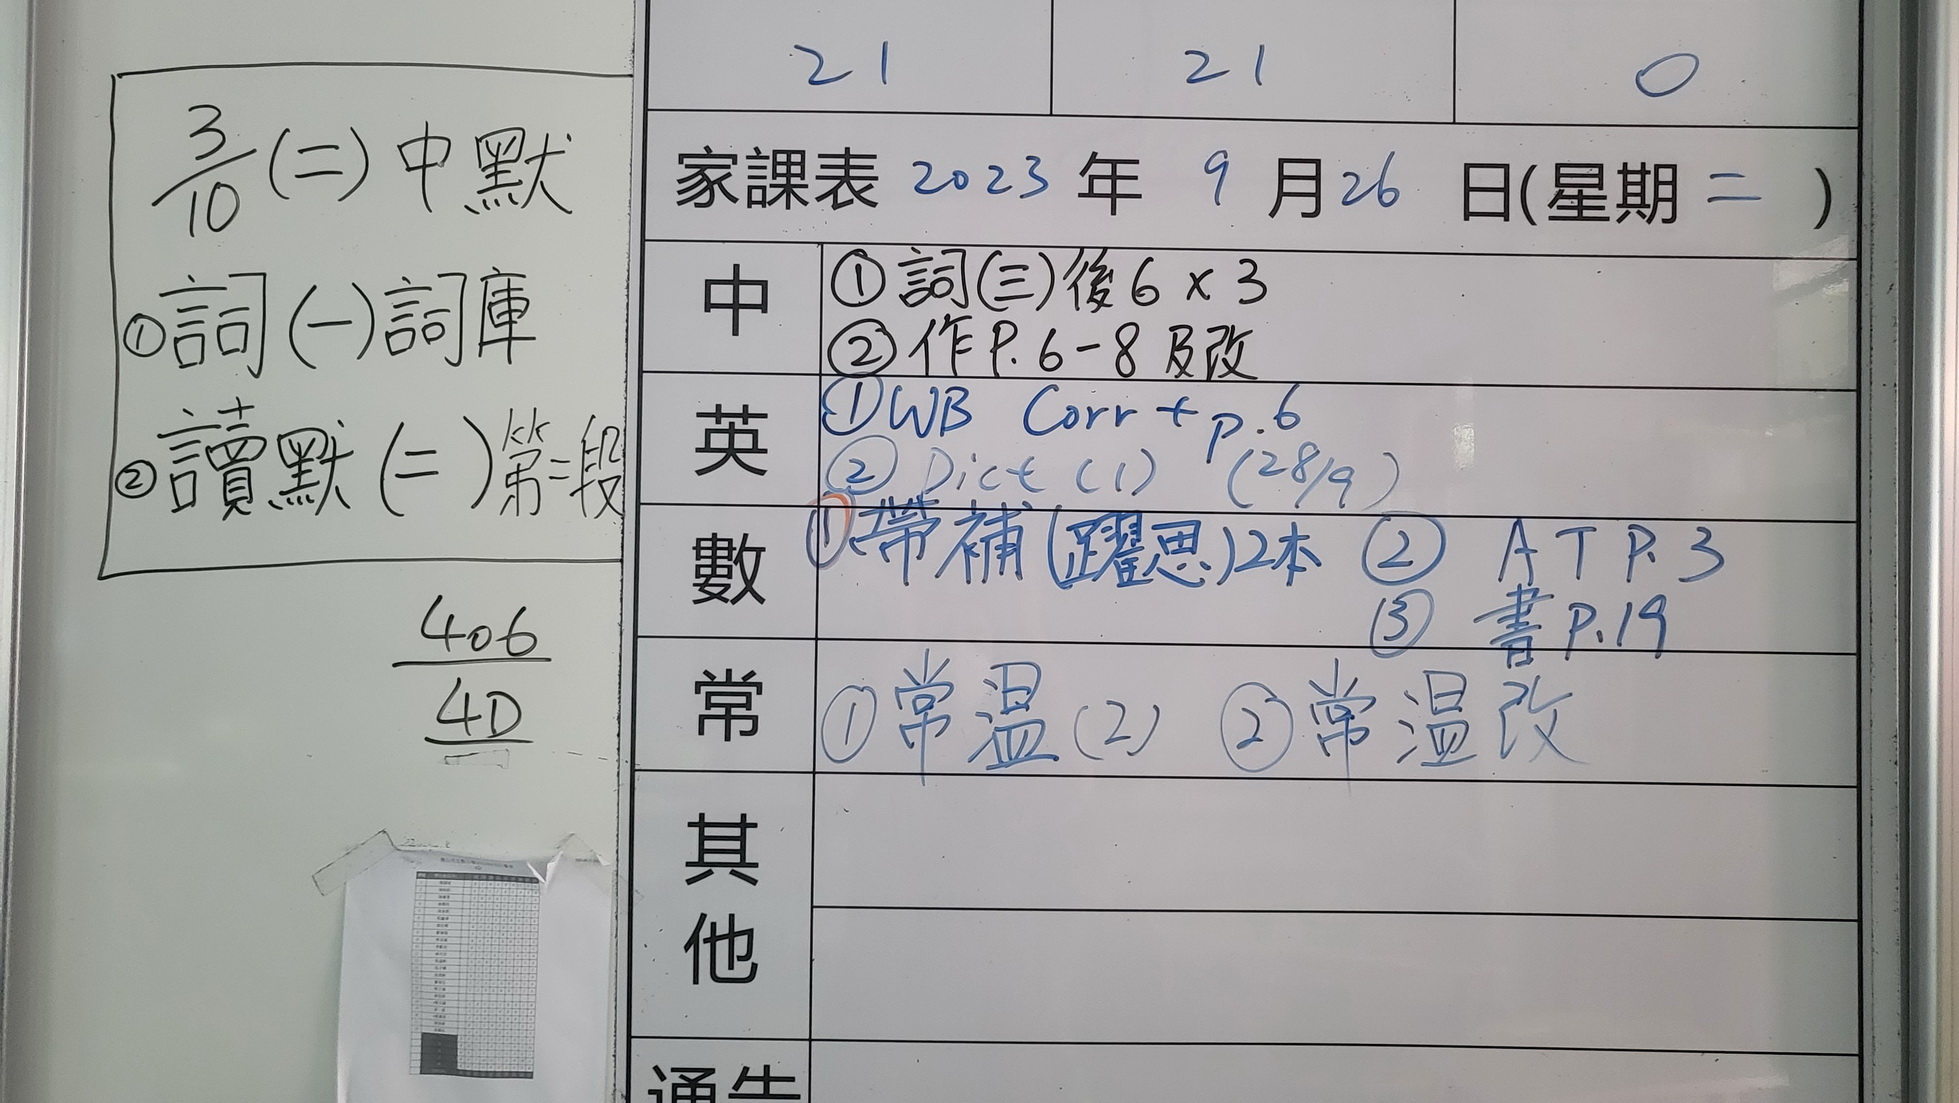 3/10 (二) 中默
①詞(一)詞庫
②讀默(二)第二段
406
4D
21 21 0
家課表 2023 年 9 月 26 日(星期 二 )
中
①詞(三)後6 x 3
②作P. 6-8 及改
英
①WB Corr + p.6
② Dict (1) (28/9)
數
①帶補(躍思)2本 ② AT P. 3
③ 書 P.19
常
①常溫(2) ②常溫改
其他
通告